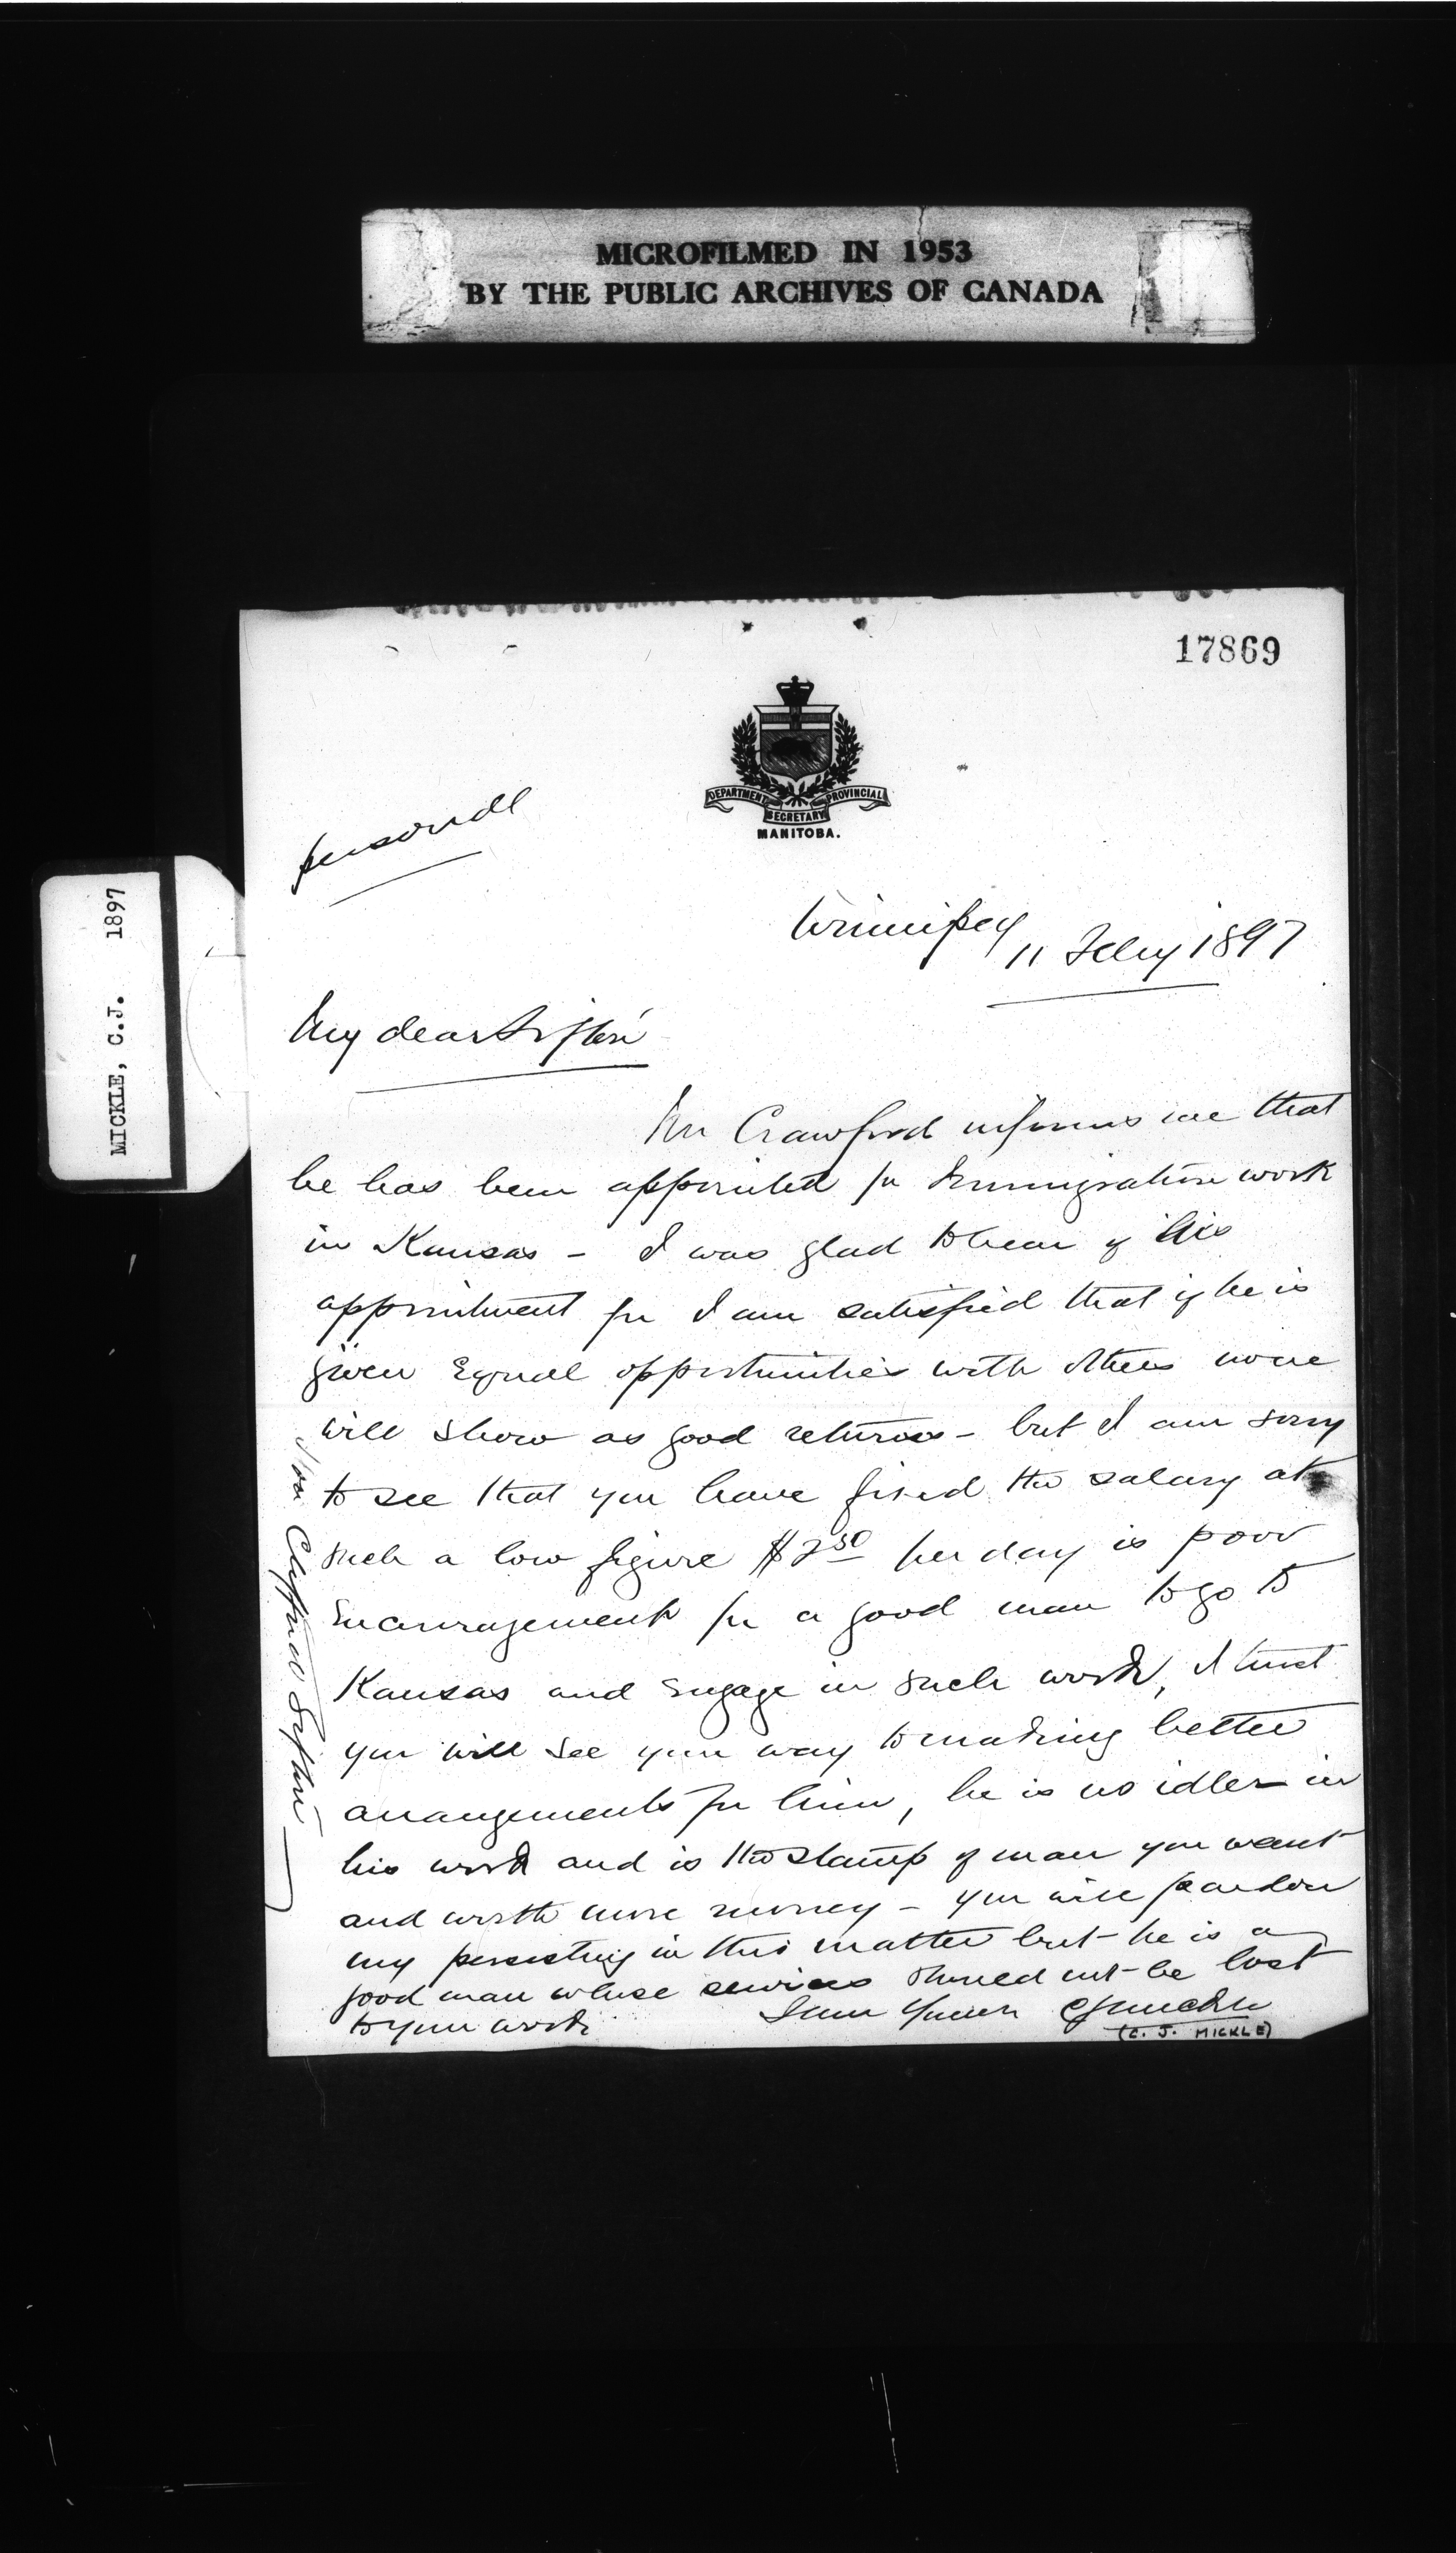 MICROFILMED IN 1953
BY THE PUBLIC ARCHIVES OF CANADA
MICKLE, C.J. 1897
17869
DEPARTMENT PROVINCIAL
SECRETARY
MANITOBA.
personal
Winnipeg
11 Feby 1897
My dear Sifton
Mr Crawford informs me that
he has been appointed for Immigration work
in Kansas - I was glad to hear of his
appointment for I am satisfied that if he is
given Equal opportunities with others none
will show as good returns - but I am sorry
to see that you have fixed the salary at
such a low figure $2 50 per day is poor
Encouragement for a good man to go to
Kansas and Engage in such work, I trust
you will see your way to making better
arrangements for him, he is no idler in
his work and is the stamp of man you want
and worth more money - you will pardon
my persisting in this matter but he is a
good man whose services should not be lost
to your work.
Yours CJ Mickle
(C. J. MICKLE)
Hon Clifford Sifton